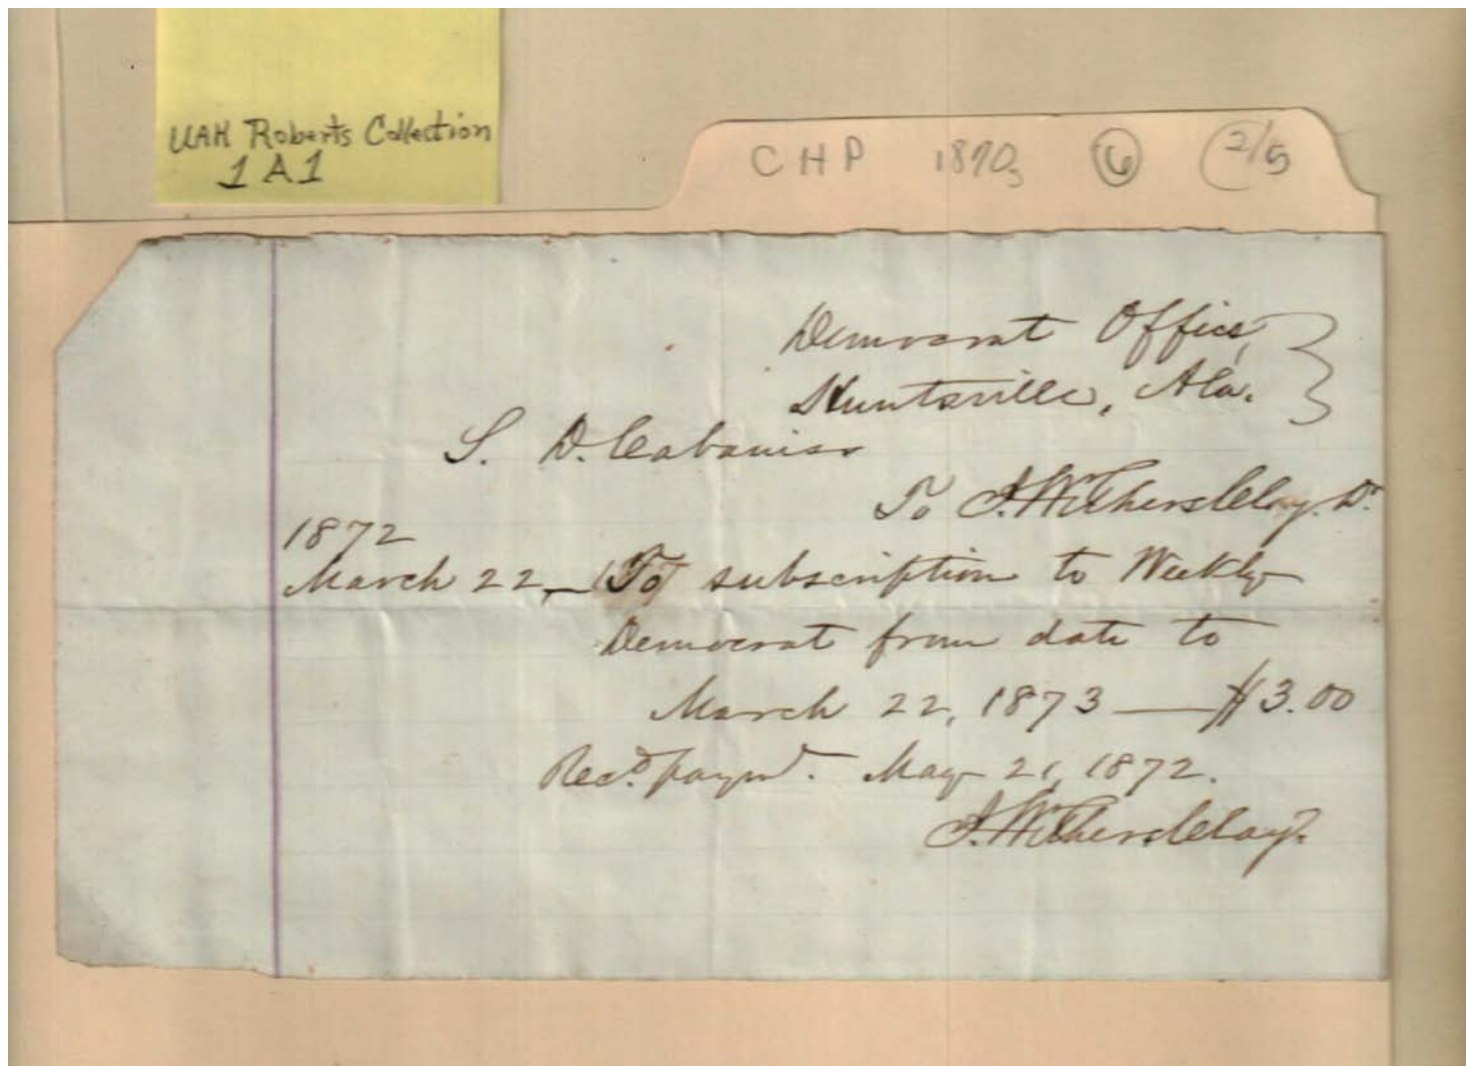 UAH Roberts Collection
1A1
CHP 1870s 6 2/5
Democrat Office,
Huntsville, Ala.
S. D. Cabaniss
To J. Withers Clay. Dr.
1872
March 22, — To subscription to Weekly
Democrat from date to
March 22, 1873 — $3.00
Recd. paymt. May 21, 1872.
J. Withers Clay.